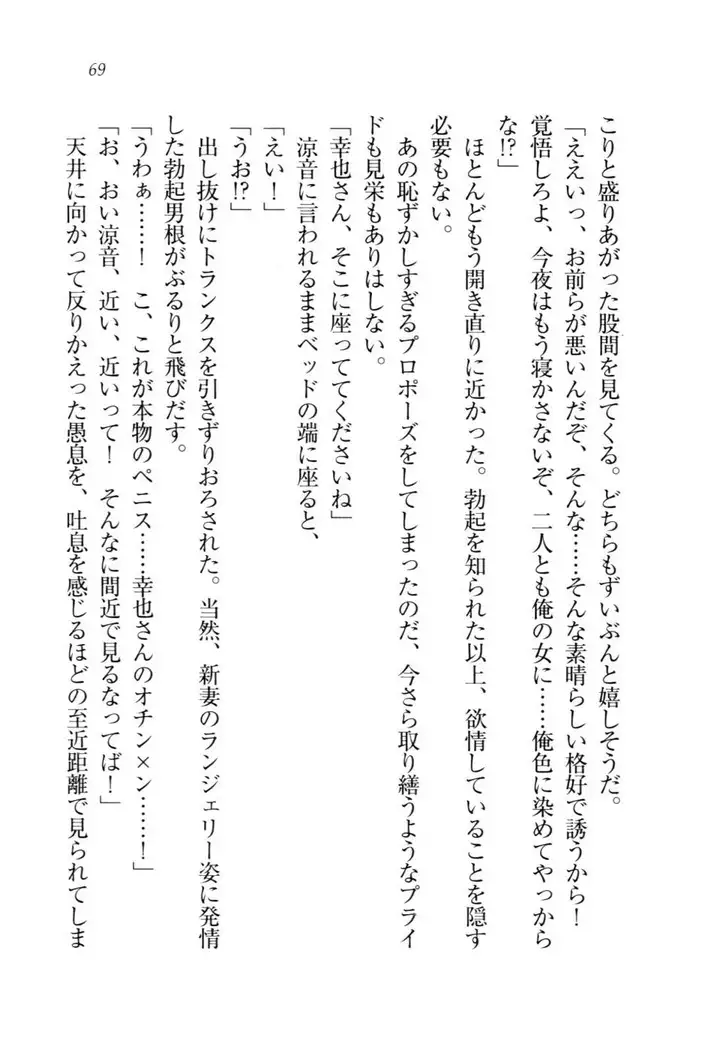 69
こりと盛りあがった股間を見てくる。どちらもずいぶんと嬉しそうだ。
「ええいっ、お前らが悪いんだぞ、そんな……そんな素晴らしい格好で誘うから！
覚悟しろよ、今夜はもう寝かさないぞ、二人とも俺の女に……俺色に染めてやっから
な!?」
ほとんどもう開き直りに近かった。勃起を知られた以上、欲情していることを隠す
必要もない。
あの恥ずかしすぎるプロポーズをしてしまったのだ、今さら取り繕うようなプライ
ドも見栄もありはしない。
「幸也さん、そこに座っててくださいね」
涼音に言われるままベッドの端に座ると、
「えい！」
「うお!?」
出し抜けにトランクスを引きずりおろされた。当然、新妻のランジェリー姿に発情
した勃起男根がぶるりと飛びだす。
「うわぁ……！　こ、これが本物のペニス……幸也さんのオチン×ン……！」
「お、おい涼音、近い、近いって！　そんなに間近で見るなってば！」
天井に向かって反りかえった愚息を、吐息を感じるほどの至近距離で見られてしま